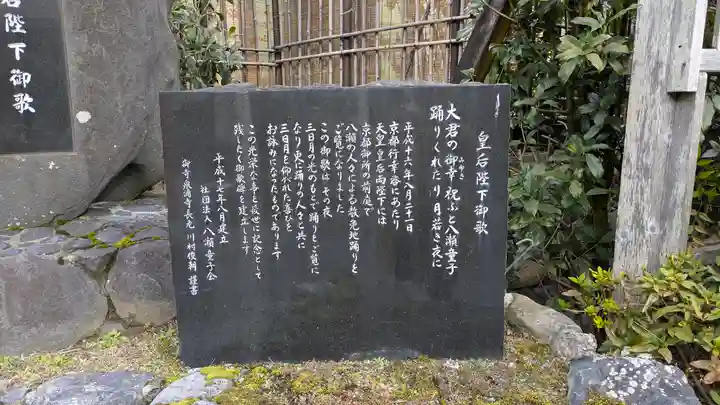 皇后陛下御歌
大君の御幸祝ふと八瀬童子
みゆき
踊りくれたり月若き夜に
平成十六年八月二十一日
京都行幸啓にあたり
天皇皇后両陛下には
京都御所の前庭で
八瀬の人々による赦免地踊りを
ご覧になりました
この御歌は その夜
三日月の光のもとで踊りをご覧に
なり 更に踊りの人々と共に
三日月を仰がれた喜びを
お詠みになったものであります
この光栄な事を後世に記念として
残したく御歌碑を建立します
平成十七年八月建立
社団法人 八瀬童子会
御寺泉涌寺長老 川村俊朝 謹書
君陛下御歌